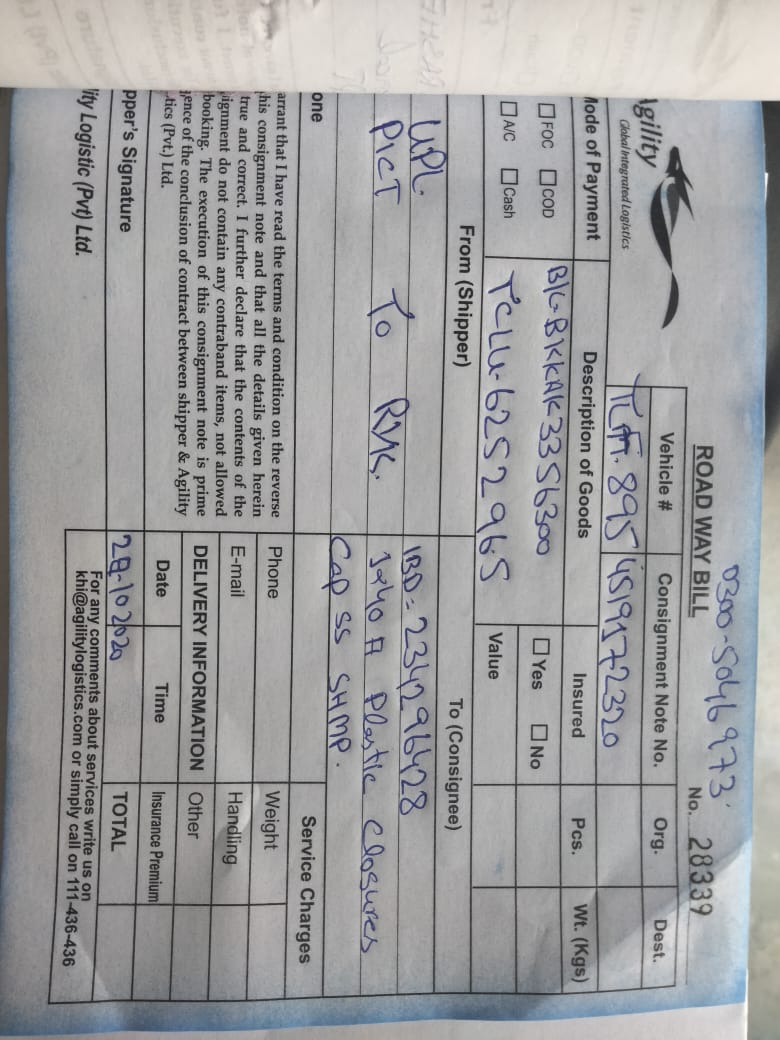 0300-5046973
ROAD WAY BILL
No. 28339
Agility
Global Integrated Logistics
Vehicle # Consignment Note No. Org. Dest.
895 4519172320
Mode of Payment Description of Goods Insured Pcs. Wt. (Kgs)
FOC COD B/L-BKKAK3356300 Yes No
A/C Cash TCLU-6252965 Value
From (Shipper) To (Consignee)
UPL. IBD=234296428
PICT To RYK. 1x40 Plastic Closures
Cap SS SHMP.
one Service Charges
arrant that I have read the terms and condition on the reverse
his consignment note and that all the details given herein
true and correct. I further declare that the contents of the
ignment do not contain any contraband items, not allowed
booking. The execution of this consignment note is prime
ence of the conclusion of contract between shipper & Agility
tics (Pvt.) Ltd.
Phone Weight
E-mail Handling
DELIVERY INFORMATION Other
Date Time Insurance Premium
pper's Signature 28-10 2020 TOTAL
lity Logistic (Pvt) Ltd.
For any comments about services write us on
khi@agilitylogistics.com or simply call on 111-436-436